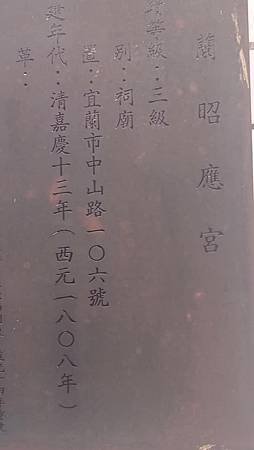 蘭昭應宮
等級：三級
別：祠廟
置：宜蘭市中山路一〇六號
建年代：清嘉慶十三年（西元一八〇八年）
革：